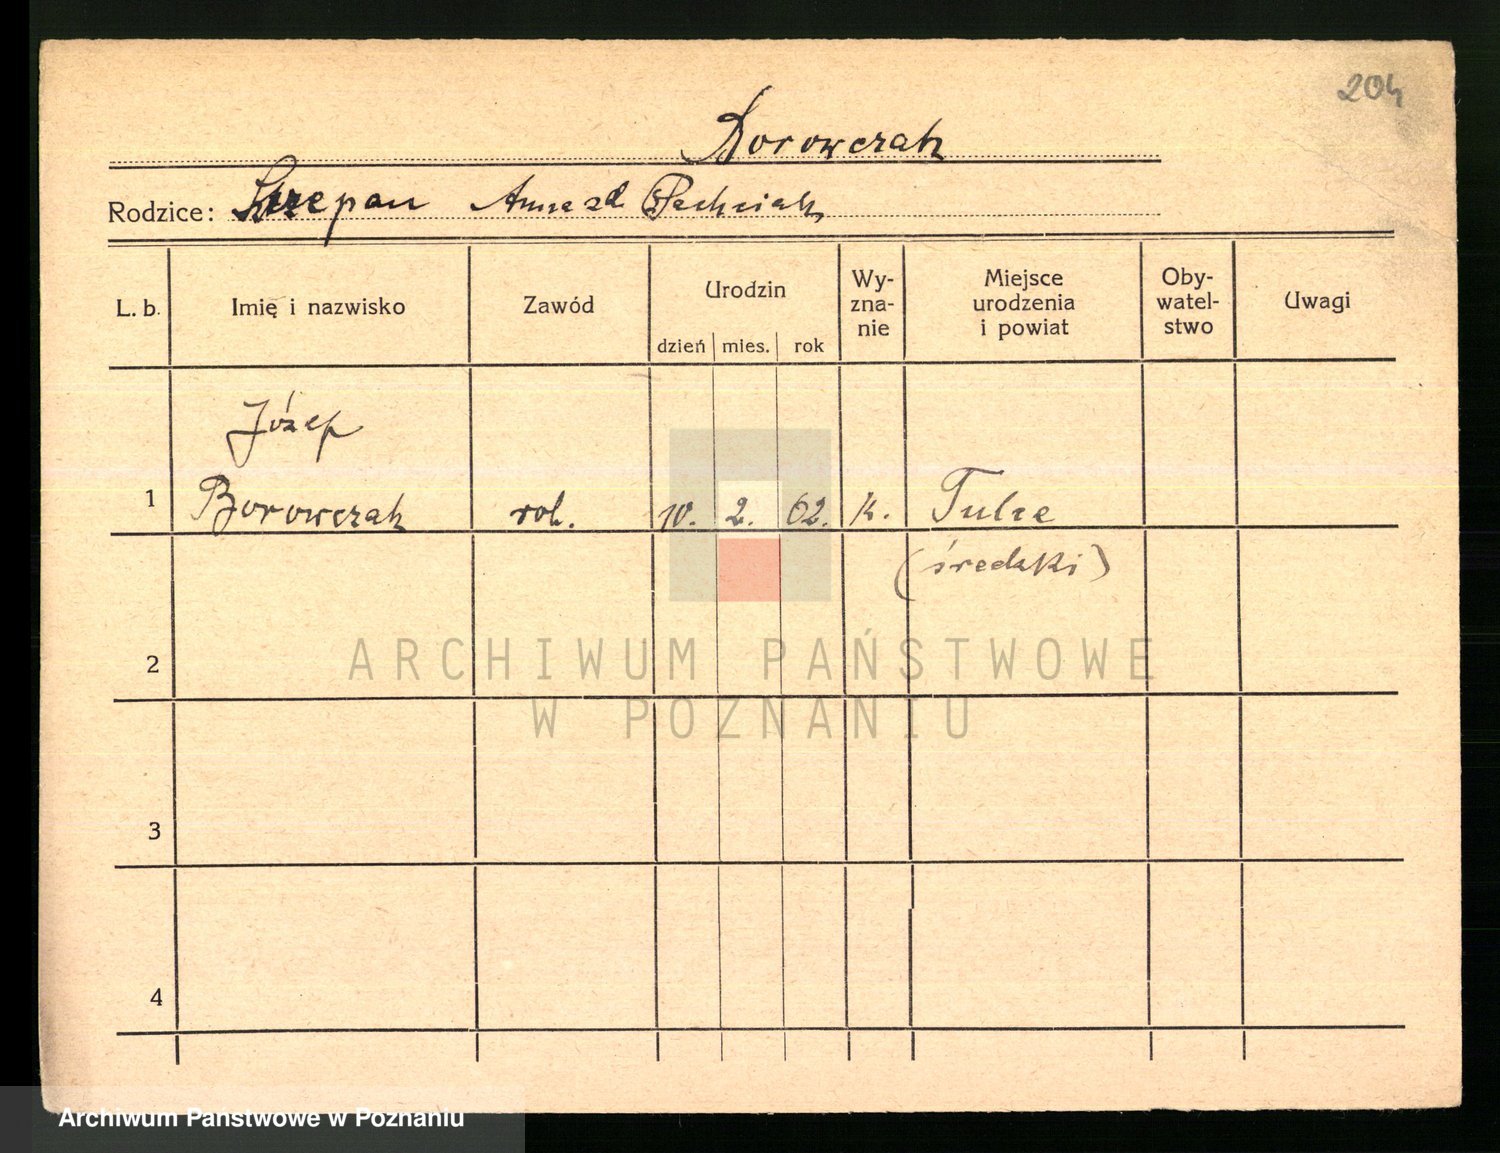 204
Borowczak
Rodzice: Szczepan Anna zd
L. b. Imię i nazwisko Zawód Urodzin dzień mies. rok Wy-zna-nie Miejsce urodzenia i powiat Oby-watel-stwo Uwagi
Józef
1 Borowczak rol. 10. 2. 62. k. Tulce
(średzki)
2
ARCHIWUM PAŃSTWOWE
W POZNANIU
3
4
Archiwum Państwowe w Poznaniu